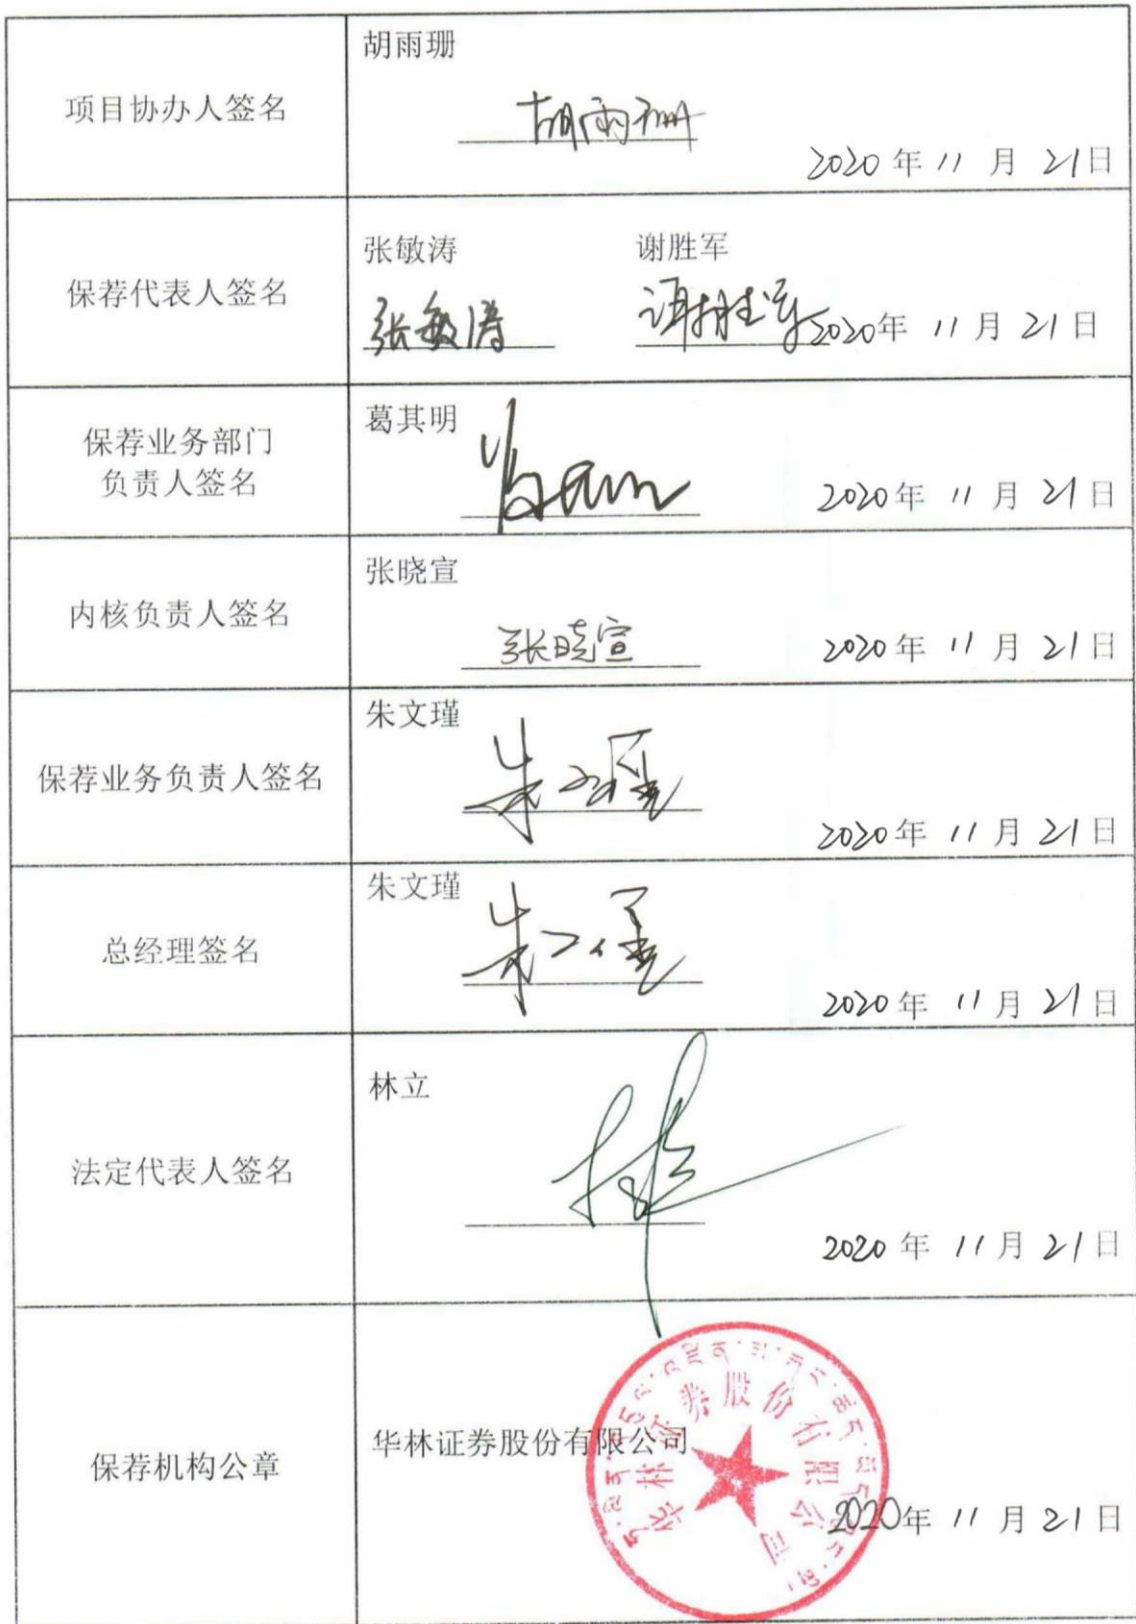 项目协办人签名
胡雨珊
胡雨珊
2020年11月21日
保荐代表人签名
张敏涛 谢胜军
张敏涛 谢胜军 2020年11月21日
保荐业务部门
负责人签名
葛其明
2020年11月21日
内核负责人签名
张晓宣
张晓宣
2020年11月21日
保荐业务负责人签名
朱文瑾
朱文瑾
2020年11月21日
总经理签名
朱文瑾
朱文瑾
2020年11月21日
法定代表人签名
林立
2020年11月21日
保荐机构公章
华林证券股份有限公司
华林证券股份有限公司
2020年11月21日